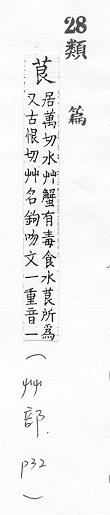 28類 篇
莨 居萬切水艸蟹有毒食水莨所爲
又古恨切艸名鉤吻文一重音一
(艸部. P32)